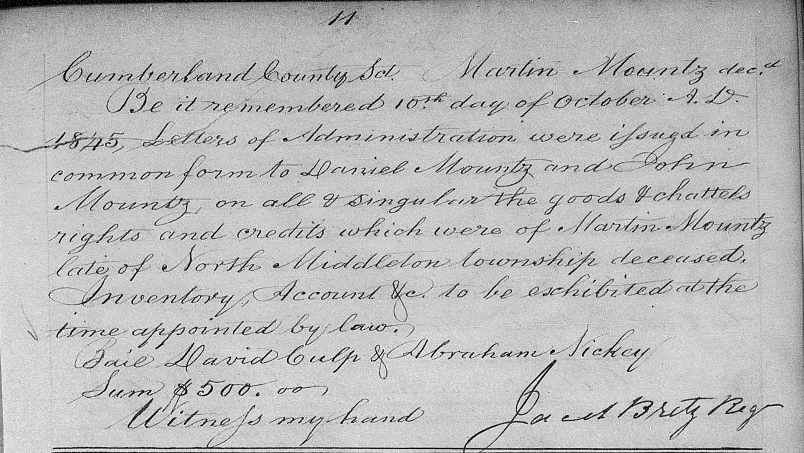 11
Cumberland County Sd. Martin Mountz dec.d
Be it remembered 10.th day of October A.D.
1845, Letters of Administration were issued in
common form to Daniel Mountz and John
Mountz, on all & singular the goods & chattels
rights and credits which were of Martin Mountz
late of North Middleton township deceased.
Inventory, Account &c. to be exhibited at the
time appointed by law.
Baie David Culp & Abraham Nickey
Sum $500.00
Witness my hand Jac Bretz Reg